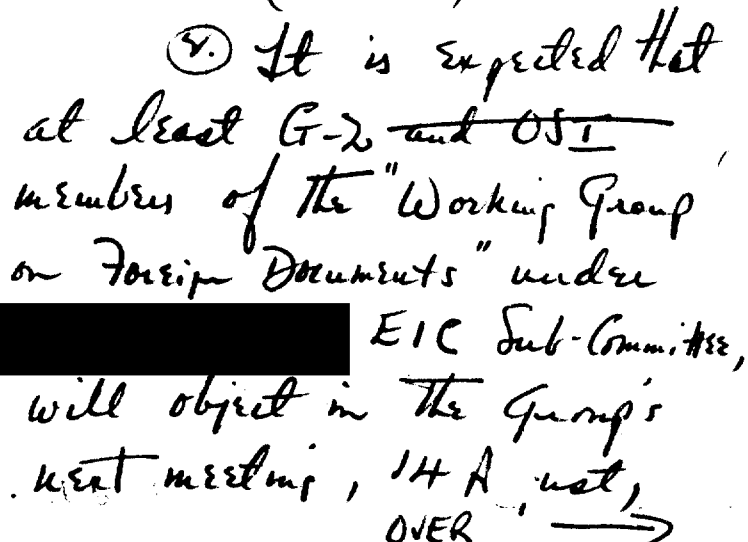 8. It is expected that
at least G-2 and OSI
members of the "Working Group
on Foreign Documents" under
EIC Sub-Committee,
will object in the Group's
next meeting, 14
OVER →